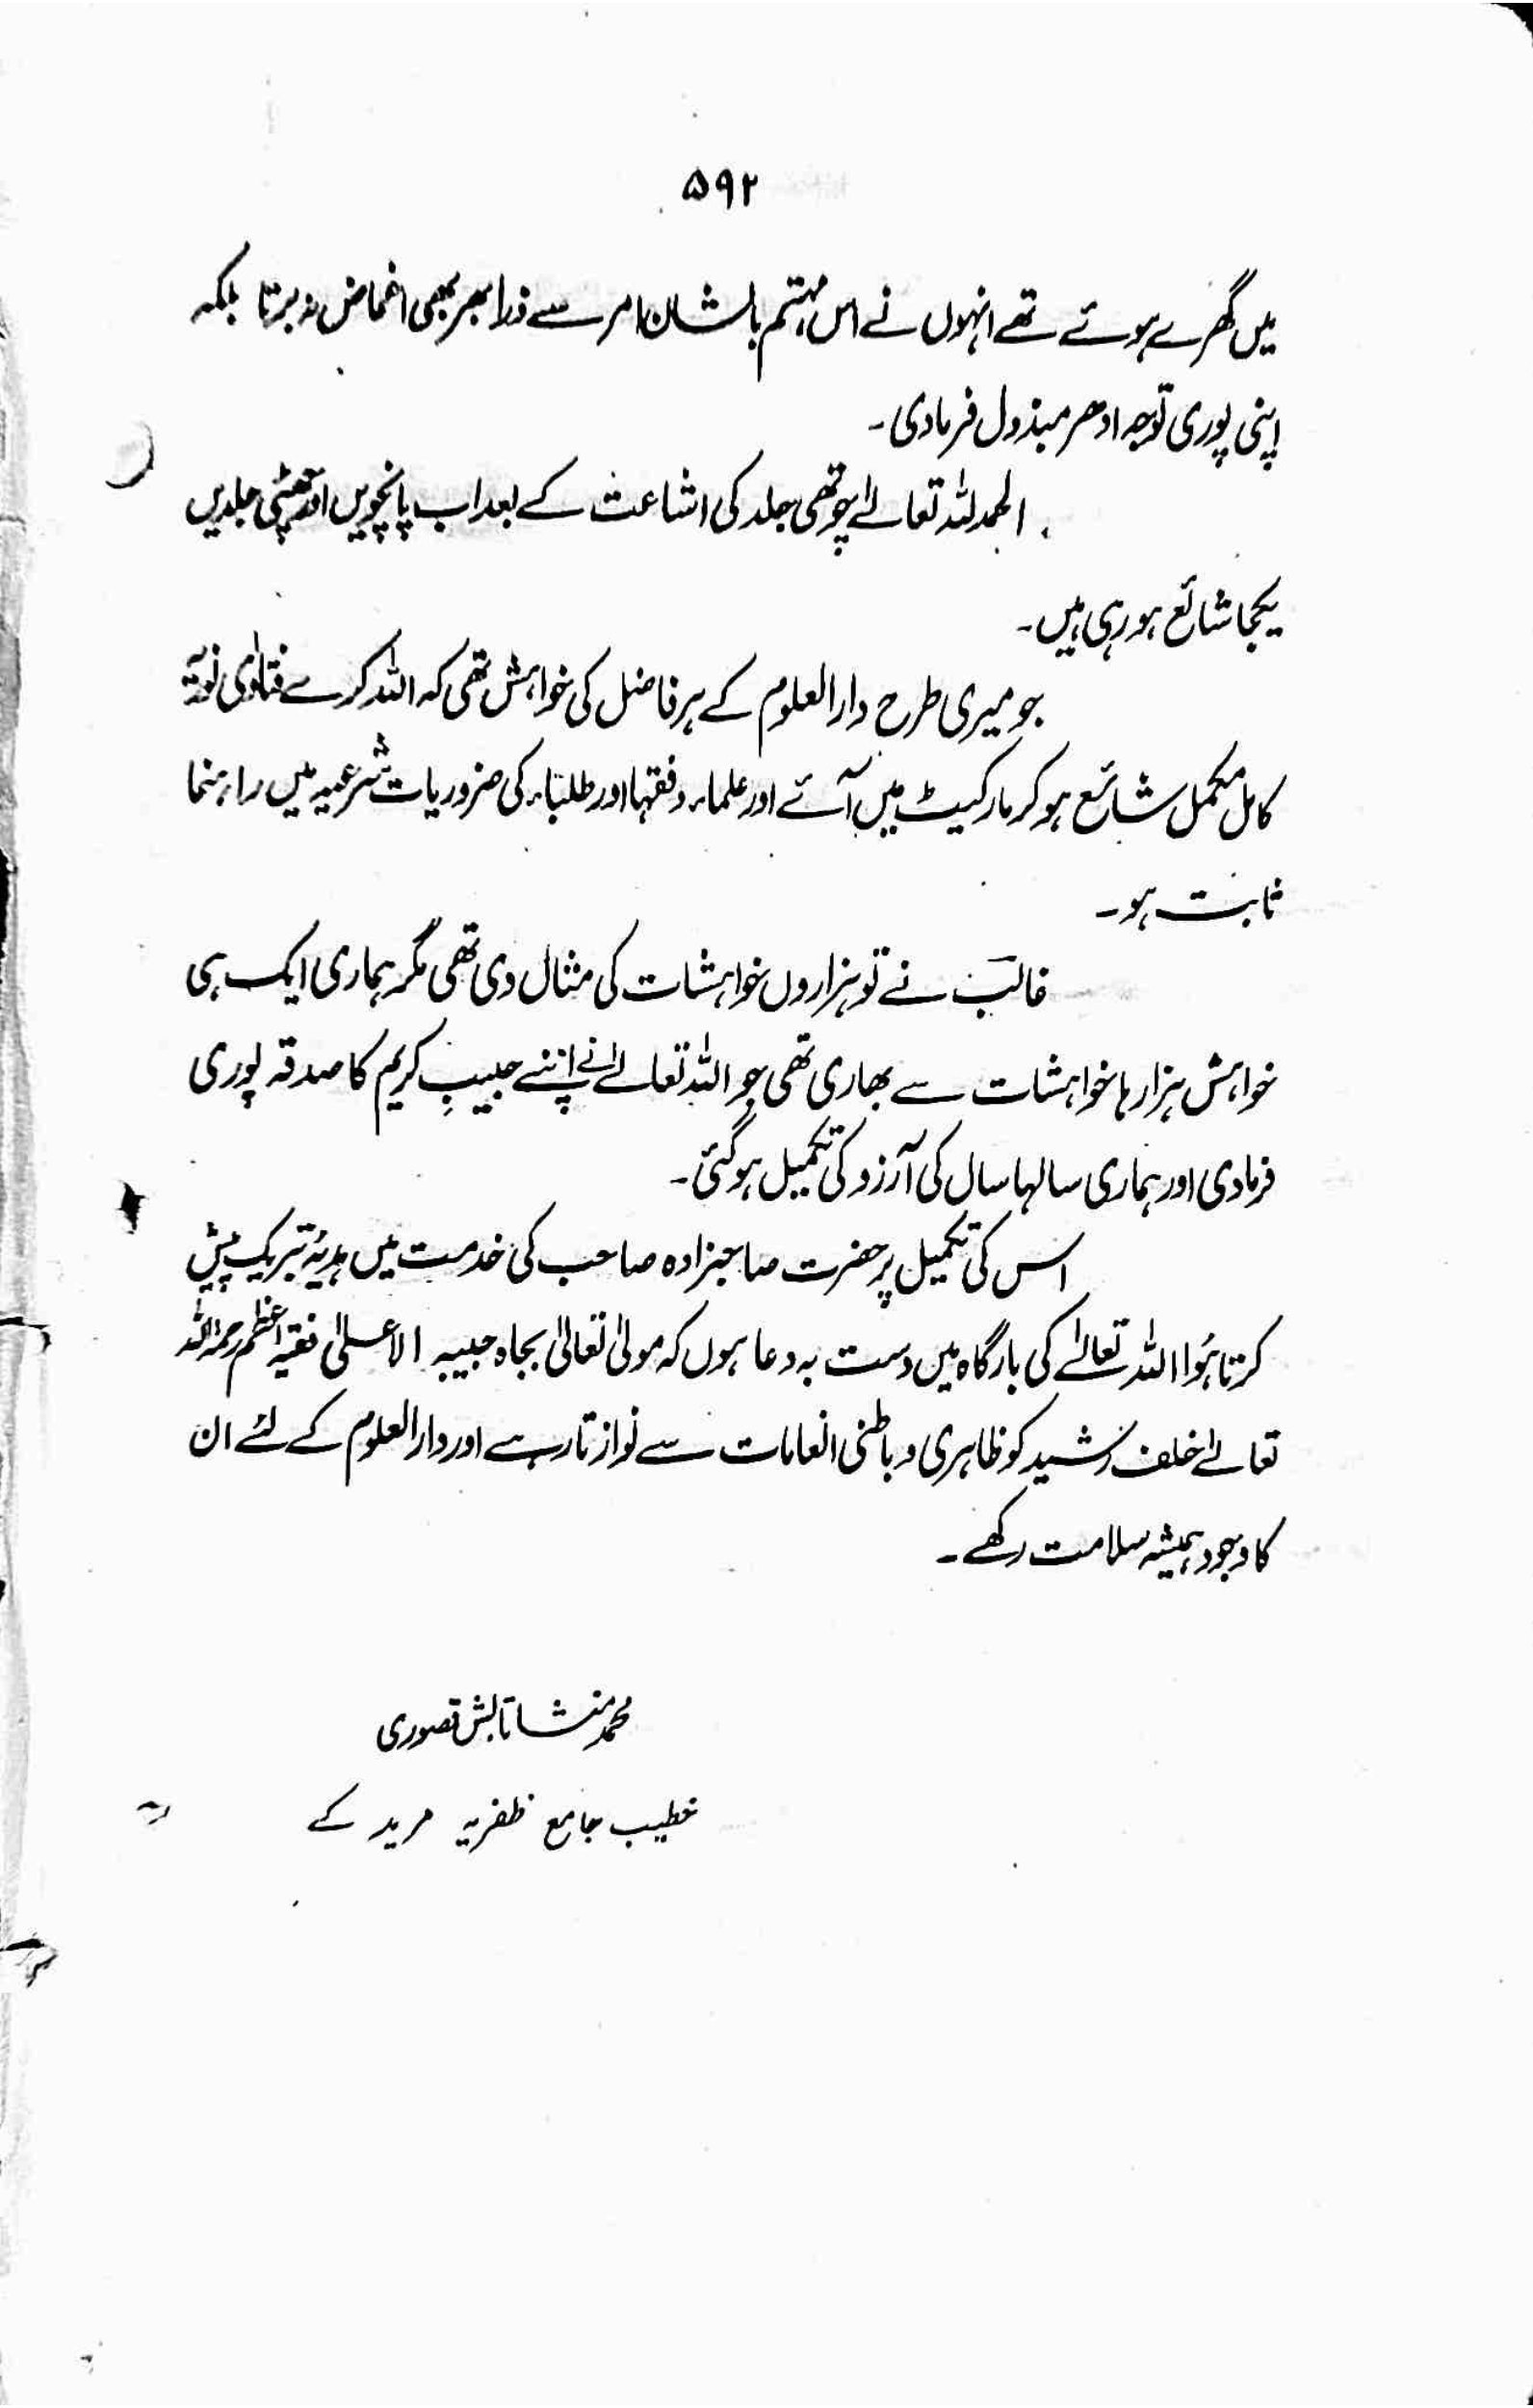 ۵۹۲
میں گھرے ہوئے تھے انہوں نے اس مہتم بالشان امر سے ذرا بھر بھی اغماض نہ برتا بلکہ
اپنی پوری توجہ ادھر مبذول فرمادی۔
الحمد للہ تعالےٰ چوتھی جلد کی اشاعت کے بعد اب پانچویں اور چھٹی جلدیں
یکجا شائع ہو رہی ہیں۔
جو میری طرح دارالعلوم کے ہر فاضل کی خواہش تھی کہ اللہ کرے فتاوٰی نوریہ
کامل مکمل شائع ہو کر مارکیٹ میں آئے اور علماء و فقہا اور طلباء کی ضروریات شرعیہ میں راہنما
ثابت ہو۔
غالب نے تو ہزاروں خواہشات کی مثال دی تھی مگر ہماری ایک ہی
خواہش ہزارہا خواہشات سے بھاری تھی جو اللہ تعالےٰ نے اپنے حبیبِ کریم کا صدقہ پوری
فرمادی اور ہماری سالہا سال کی آرزو کی تکمیل ہوگئی۔
اس کی تکمیل پر حضرت صاحبزادہ صاحب کی خدمت میں ہدیۂ تبریک پیش
کرتا ہُوا اللہ تعالےٰ کی بارگاہ میں دست بہ دعا ہوں کہ مولیٰ تعالیٰ بجاہ حبیبہ الاعلیٰ فقیہ اعظم رحمہ اللہ
تعالےٰ خلف رشید کو ظاہری و باطنی انعامات سے نوازتا رہے اور دارالعلوم کے لئے ان
کا وجود ہمیشہ سلامت رکھے۔
محمد منشا تابش قصوری
خطیب جامع ظفریہ مرید کے